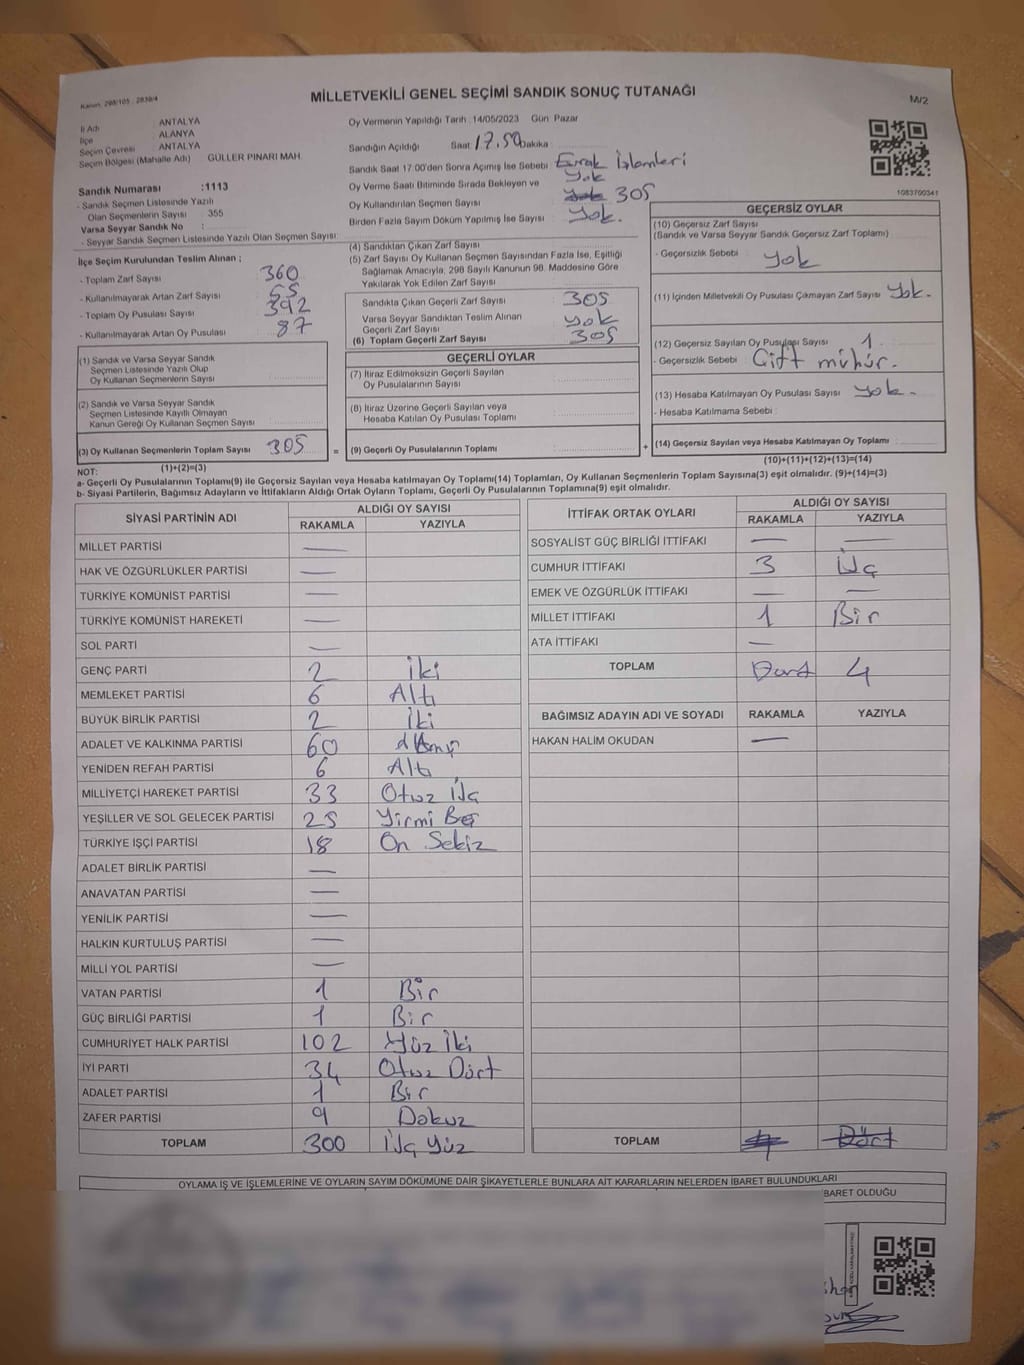 Kanun. 298/105 . 2839/4
MİLLETVEKİLİ GENEL SEÇİMİ SANDIK SONUÇ TUTANAĞI
M/2
İl Adı : ANTALYA
İlçe : ALANYA
Seçim Çevresi : ANTALYA
Seçim Bölgesi (Mahalle Adı) GÜLLER PINARI MAH.
Sandık Numarası :1113
- Sandık Seçmen Listesinde Yazılı
Olan Seçmenlerin Sayısı : 355
Varsa Seyyar Sandık No :
- Seyyar Sandık Seçmen Listesinde Yazılı Olan Seçmen Sayısı:
Oy Vermenin Yapıldığı Tarih :14/05/2023 Gün Pazar
Sandığın Açıldığı Saat 17.50 Dakika
Sandık Saat 17:00'den Sonra Açımış İse Sebebi Evrak İşlemleri
Oy Verme Saati Bitiminde Sırada Bekleyen ve Yok
Oy Kullandırılan Seçmen Sayısı 305
Birden Fazla Sayım Döküm Yapılmış İse Sayısı Yok.
1083700341
İlçe Seçim Kurulundan Teslim Alınan ;
- Toplam Zarf Sayısı 360
- Kullanılmayarak Artan Zarf Sayısı 55
- Toplam Oy Pusulası Sayısı 392
- Kullanılmayarak Artan Oy Pusulası 87
(1) Sandık ve Varsa Seyyar Sandık
Seçmen Listesinde Yazılı Olup
Oy Kullanan Seçmenlerin Sayısı
(2) Sandık ve Varsa Seyyar Sandık
Seçmen Listesinde Kayıtlı Olmayan
Kanun Gereği Oy Kullanan Seçmen Sayısı
(3) Oy Kullanan Seçmenlerin Toplam Sayısı 305
(1)+(2)=(3)
(4) Sandıktan Çıkan Zarf Sayısı
(5) Zarf Sayısı Oy Kullanan Seçmen Sayısından Fazla İse, Eşitliği
Sağlamak Amacıyla, 298 Sayılı Kanunun 98. Maddesine Göre
Yakılarak Yok Edilen Zarf Sayısı
Sandıkta Çıkan Geçerli Zarf Sayısı 305
Varsa Seyyar Sandıktan Teslim Alınan
Geçerli Zarf Sayısı Yok
(6) Toplam Geçerli Zarf Sayısı 305
GEÇERLİ OYLAR
(7) İtiraz Edilmeksizin Geçerli Sayılan
Oy Pusulalarının Sayısı
(8) İtiraz Üzerine Geçerli Sayılan veya
Hesaba Katılan Oy Pusulası Toplamı
= (9) Geçerli Oy Pusulalarının Toplamı
GEÇERSİZ OYLAR
(10) Geçersiz Zarf Sayısı
(Sandık ve Varsa Seyyar Sandık Geçersiz Zarf Toplamı)
- Geçersizlik Sebebi : Yok
(11) İçinden Milletvekili Oy Pusulası Çıkmayan Zarf Sayısı Yok.
(12) Geçersiz Sayılan Oy Pusulası Sayısı 1
- Geçersizlik Sebebi : Çift mühür.
(13) Hesaba Katılmayan Oy Pusulası Sayısı Yok.
- Hesaba Katılmama Sebebi :
+ (14) Geçersiz Sayılan veya Hesaba Katılmayan Oy Toplamı
(10)+(11)+(12)+(13)=(14)
NOT:
a- Geçerli Oy Pusulalarının Toplamı(9) ile Geçersiz Sayılan veya Hesaba katılmayan Oy Toplamı(14) Toplamları, Oy Kullanan Seçmenlerin Toplam Sayısına(3) eşit olmalıdır. (9)+(14)=(3)
b- Siyasi Partilerin, Bağımsız Adayların ve İttifakların Aldığı Ortak Oyların Toplamı, Geçerli Oy Pusulalarının Toplamına(9) eşit olmalıdır.
SİYASİ PARTİNİN ADI ALDIĞI OY SAYISI
RAKAMLA YAZIYLA
MİLLET PARTİSİ —
HAK VE ÖZGÜRLÜKLER PARTİSİ —
TÜRKİYE KOMÜNİST PARTİSİ —
TÜRKİYE KOMÜNİST HAREKETİ —
SOL PARTİ —
GENÇ PARTİ 2 İki
MEMLEKET PARTİSİ 6 Altı
BÜYÜK BİRLİK PARTİSİ 2 İki
ADALET VE KALKINMA PARTİSİ 60 Altmış
YENİDEN REFAH PARTİSİ 6 Altı
MİLLİYETÇİ HAREKET PARTİSİ 33 Otuz Üç
YEŞİLLER VE SOL GELECEK PARTİSİ 25 Yirmi Beş
TÜRKİYE İŞÇİ PARTİSİ 18 On Sekiz
ADALET BİRLİK PARTİSİ —
ANAVATAN PARTİSİ —
YENİLİK PARTİSİ —
HALKIN KURTULUŞ PARTİSİ —
MİLLİ YOL PARTİSİ —
VATAN PARTİSİ 1 Bir
GÜÇ BİRLİĞİ PARTİSİ 1 Bir
CUMHURİYET HALK PARTİSİ 102 Yüz İki
İYİ PARTİ 34 Otuz Dört
ADALET PARTİSİ 1 Bir
ZAFER PARTİSİ 9 Dokuz
TOPLAM 300 Üç Yüz
İTTİFAK ORTAK OYLARI ALDIĞI OY SAYISI
RAKAMLA YAZIYLA
SOSYALİST GÜÇ BİRLİĞİ İTTİFAKI — —
CUMHUR İTTİFAKI 3 Üç
EMEK VE ÖZGÜRLÜK İTTİFAKI — —
MİLLET İTTİFAKI 1 Bir
ATA İTTİFAKI —
TOPLAM Dört 4
BAĞIMSIZ ADAYIN ADI VE SOYADI RAKAMLA YAZIYLA
HAKAN HALİM OKUDAN —
TOPLAM 4 Dört
OYLAMA İŞ VE İŞLEMLERİNE VE OYLARIN SAYIM DÖKÜMÜNE DAİR ŞİKAYETLERLE BUNLARA AİT KARARLARIN NELERDEN İBARET BULUNDUKLARI
İBARET OLDUĞU